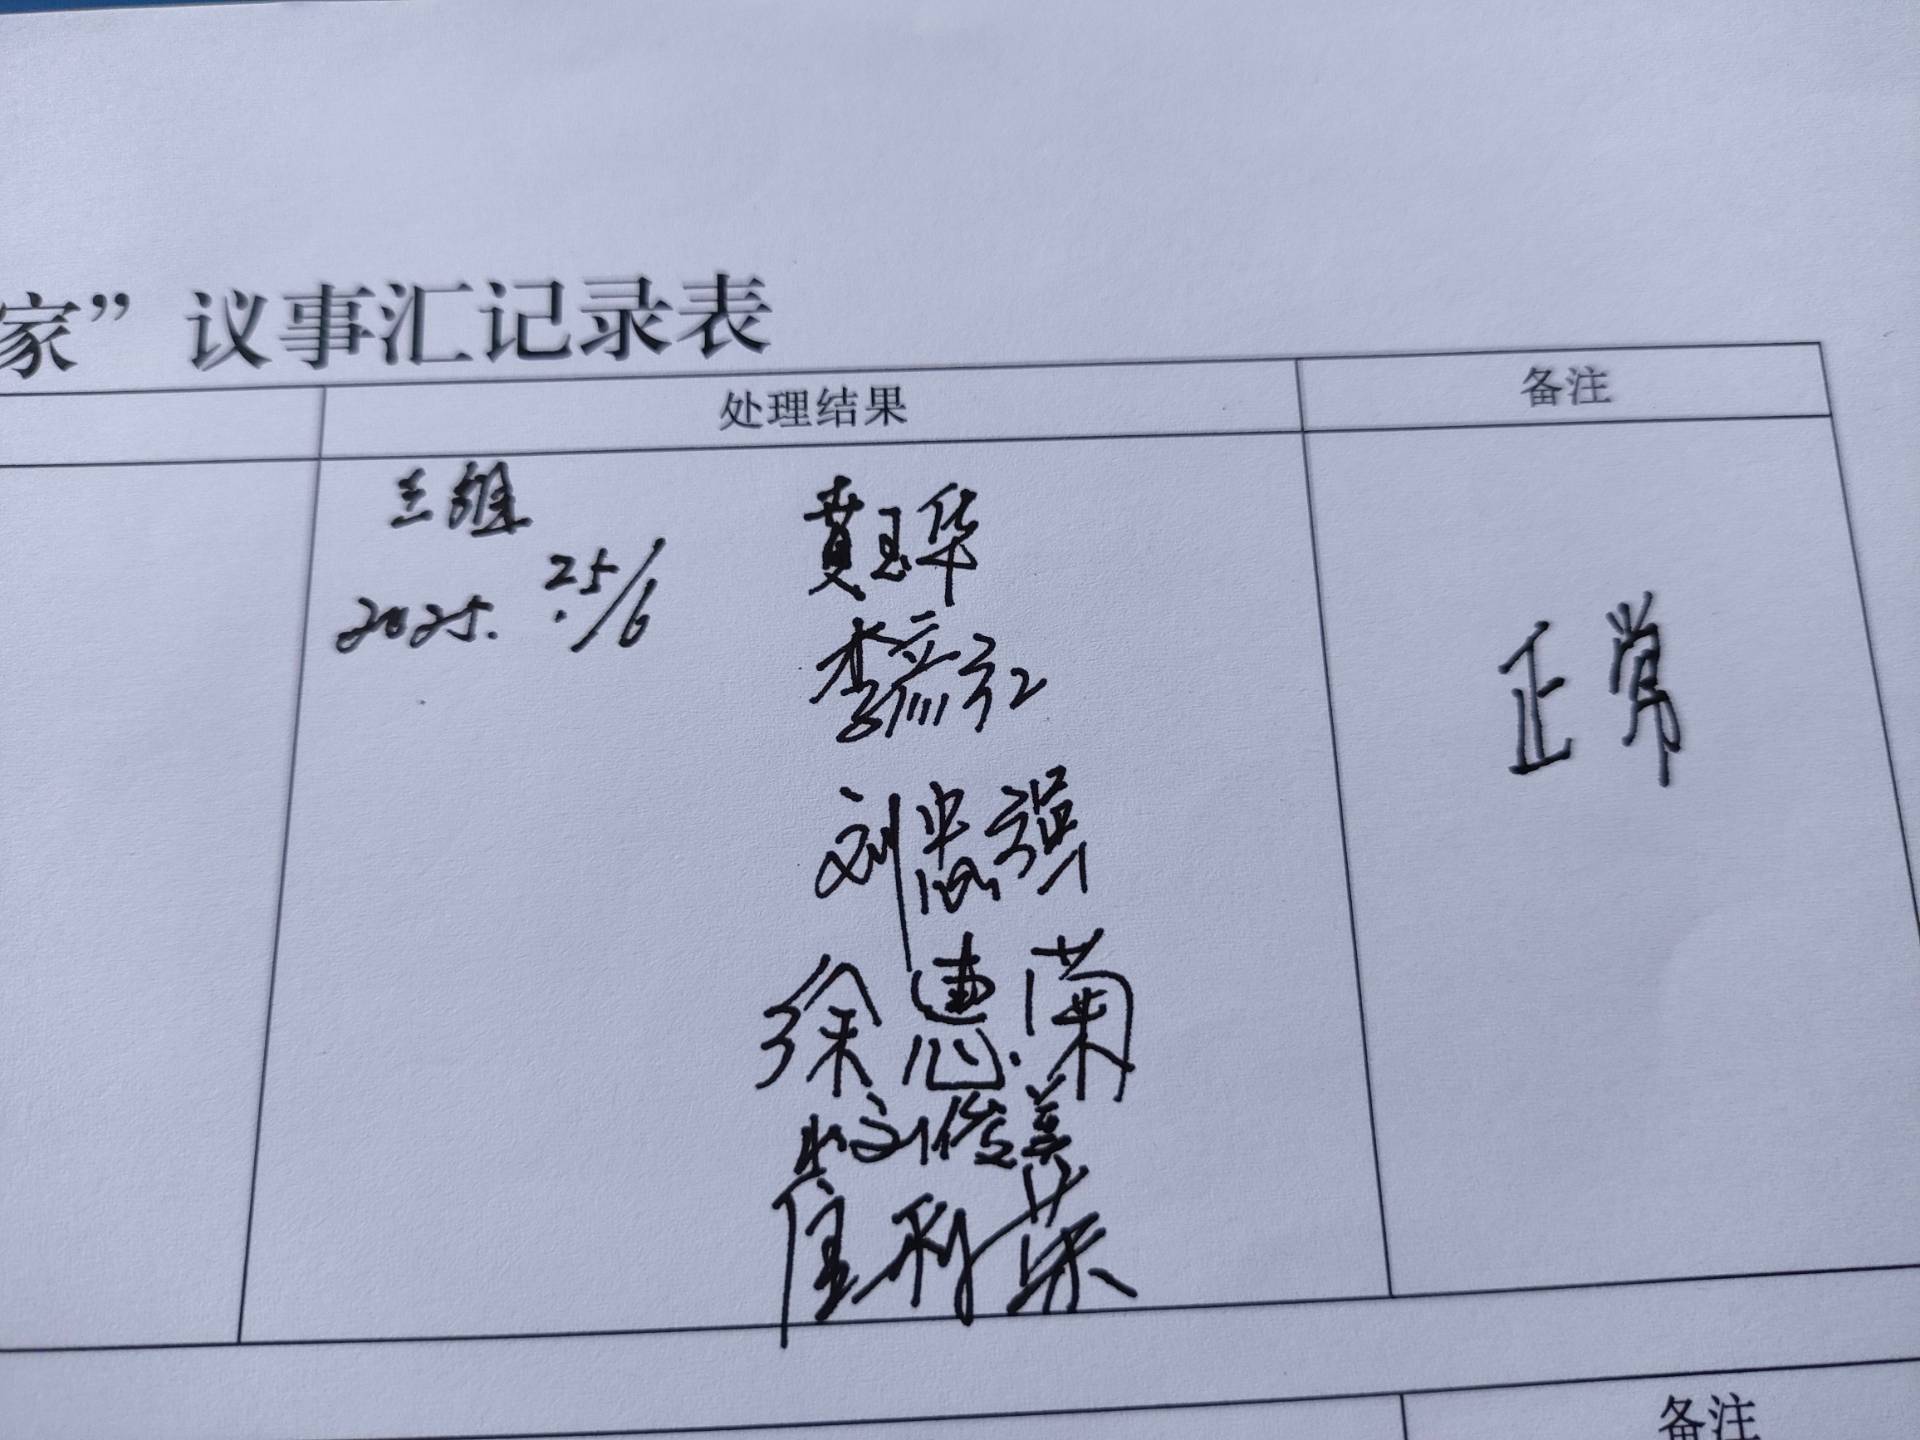 家”议事汇记录表
处理结果
备注
三组
2025. 25/6
黄玉华
李彦红
刘忠强
徐惠菊
刘俊美
崔利荣
正常
备注